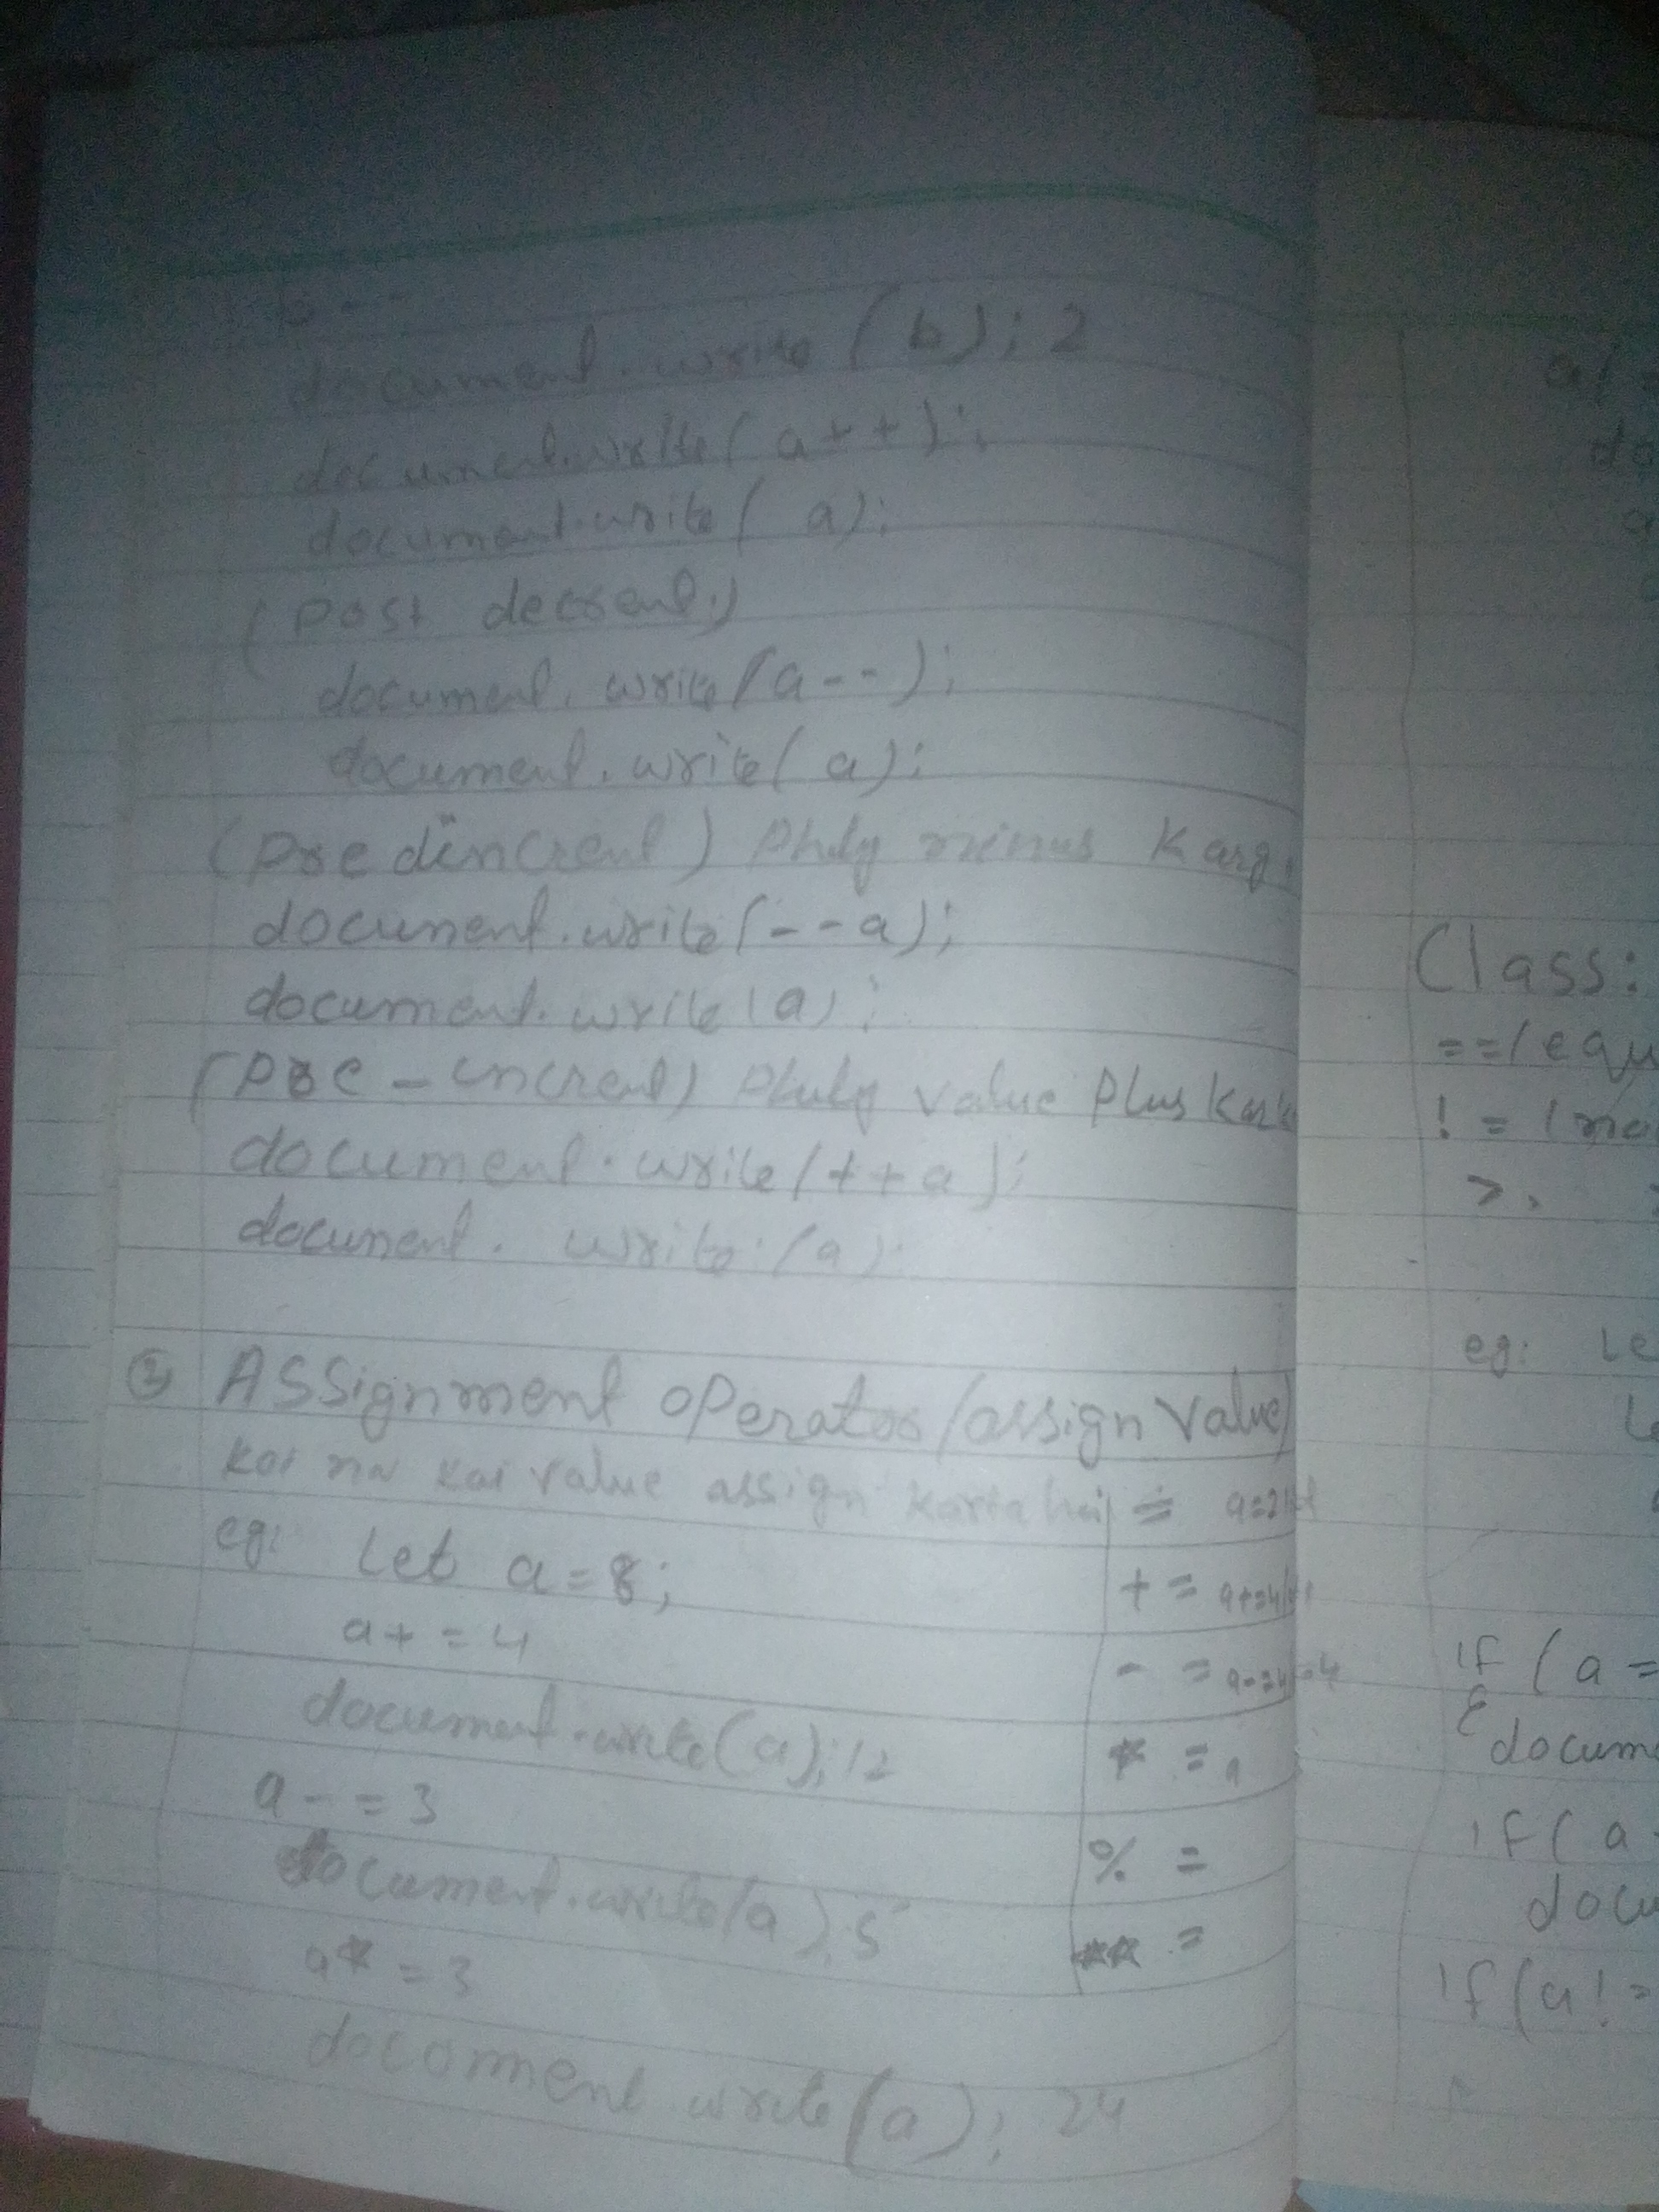 b--
document.write (b); 2
document.write( a++);
document.write( a);
(Post decrent)
document.write(a--);
document.write( a);
(Pre dincrent) Phly minus Karg
document.write(--a);
document.write(a);
(Pre-incrent) Phuly value Plus Kar
document.write(++a);
document. write.(a)
Assignment operator (assign value)
Koi na koi value assign karta hai
=
eg: Let a=8;
+ =
a+ =4
- =
document.write(a); 12
* = a
a- =3
% =
document.write(a); 5
** =
a* =3
docoment write(a); 24
Class:
==(equ
! = (no
>,
eg: Le
if (a =
{
docum
if( a
docu
if(a! =